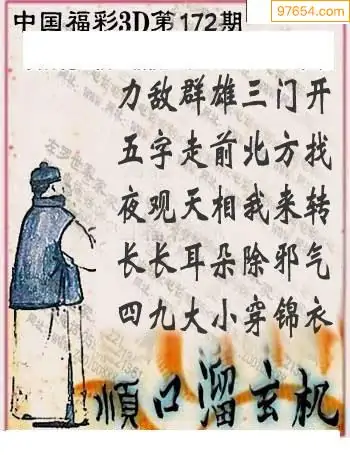 97654.com
中国福彩3D第172期
力敌群雄三门开
五字走前北方找
夜观天相我来转
长长耳朵除邪气
四九大小穿锦衣
顺口溜玄机